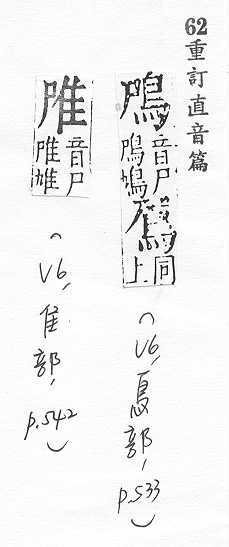 62重訂直音篇
鳲
音尸
鳲鳩
同
上
（V6, 鳥部, p.533）
音尸
（V6, 隹部, p.542）